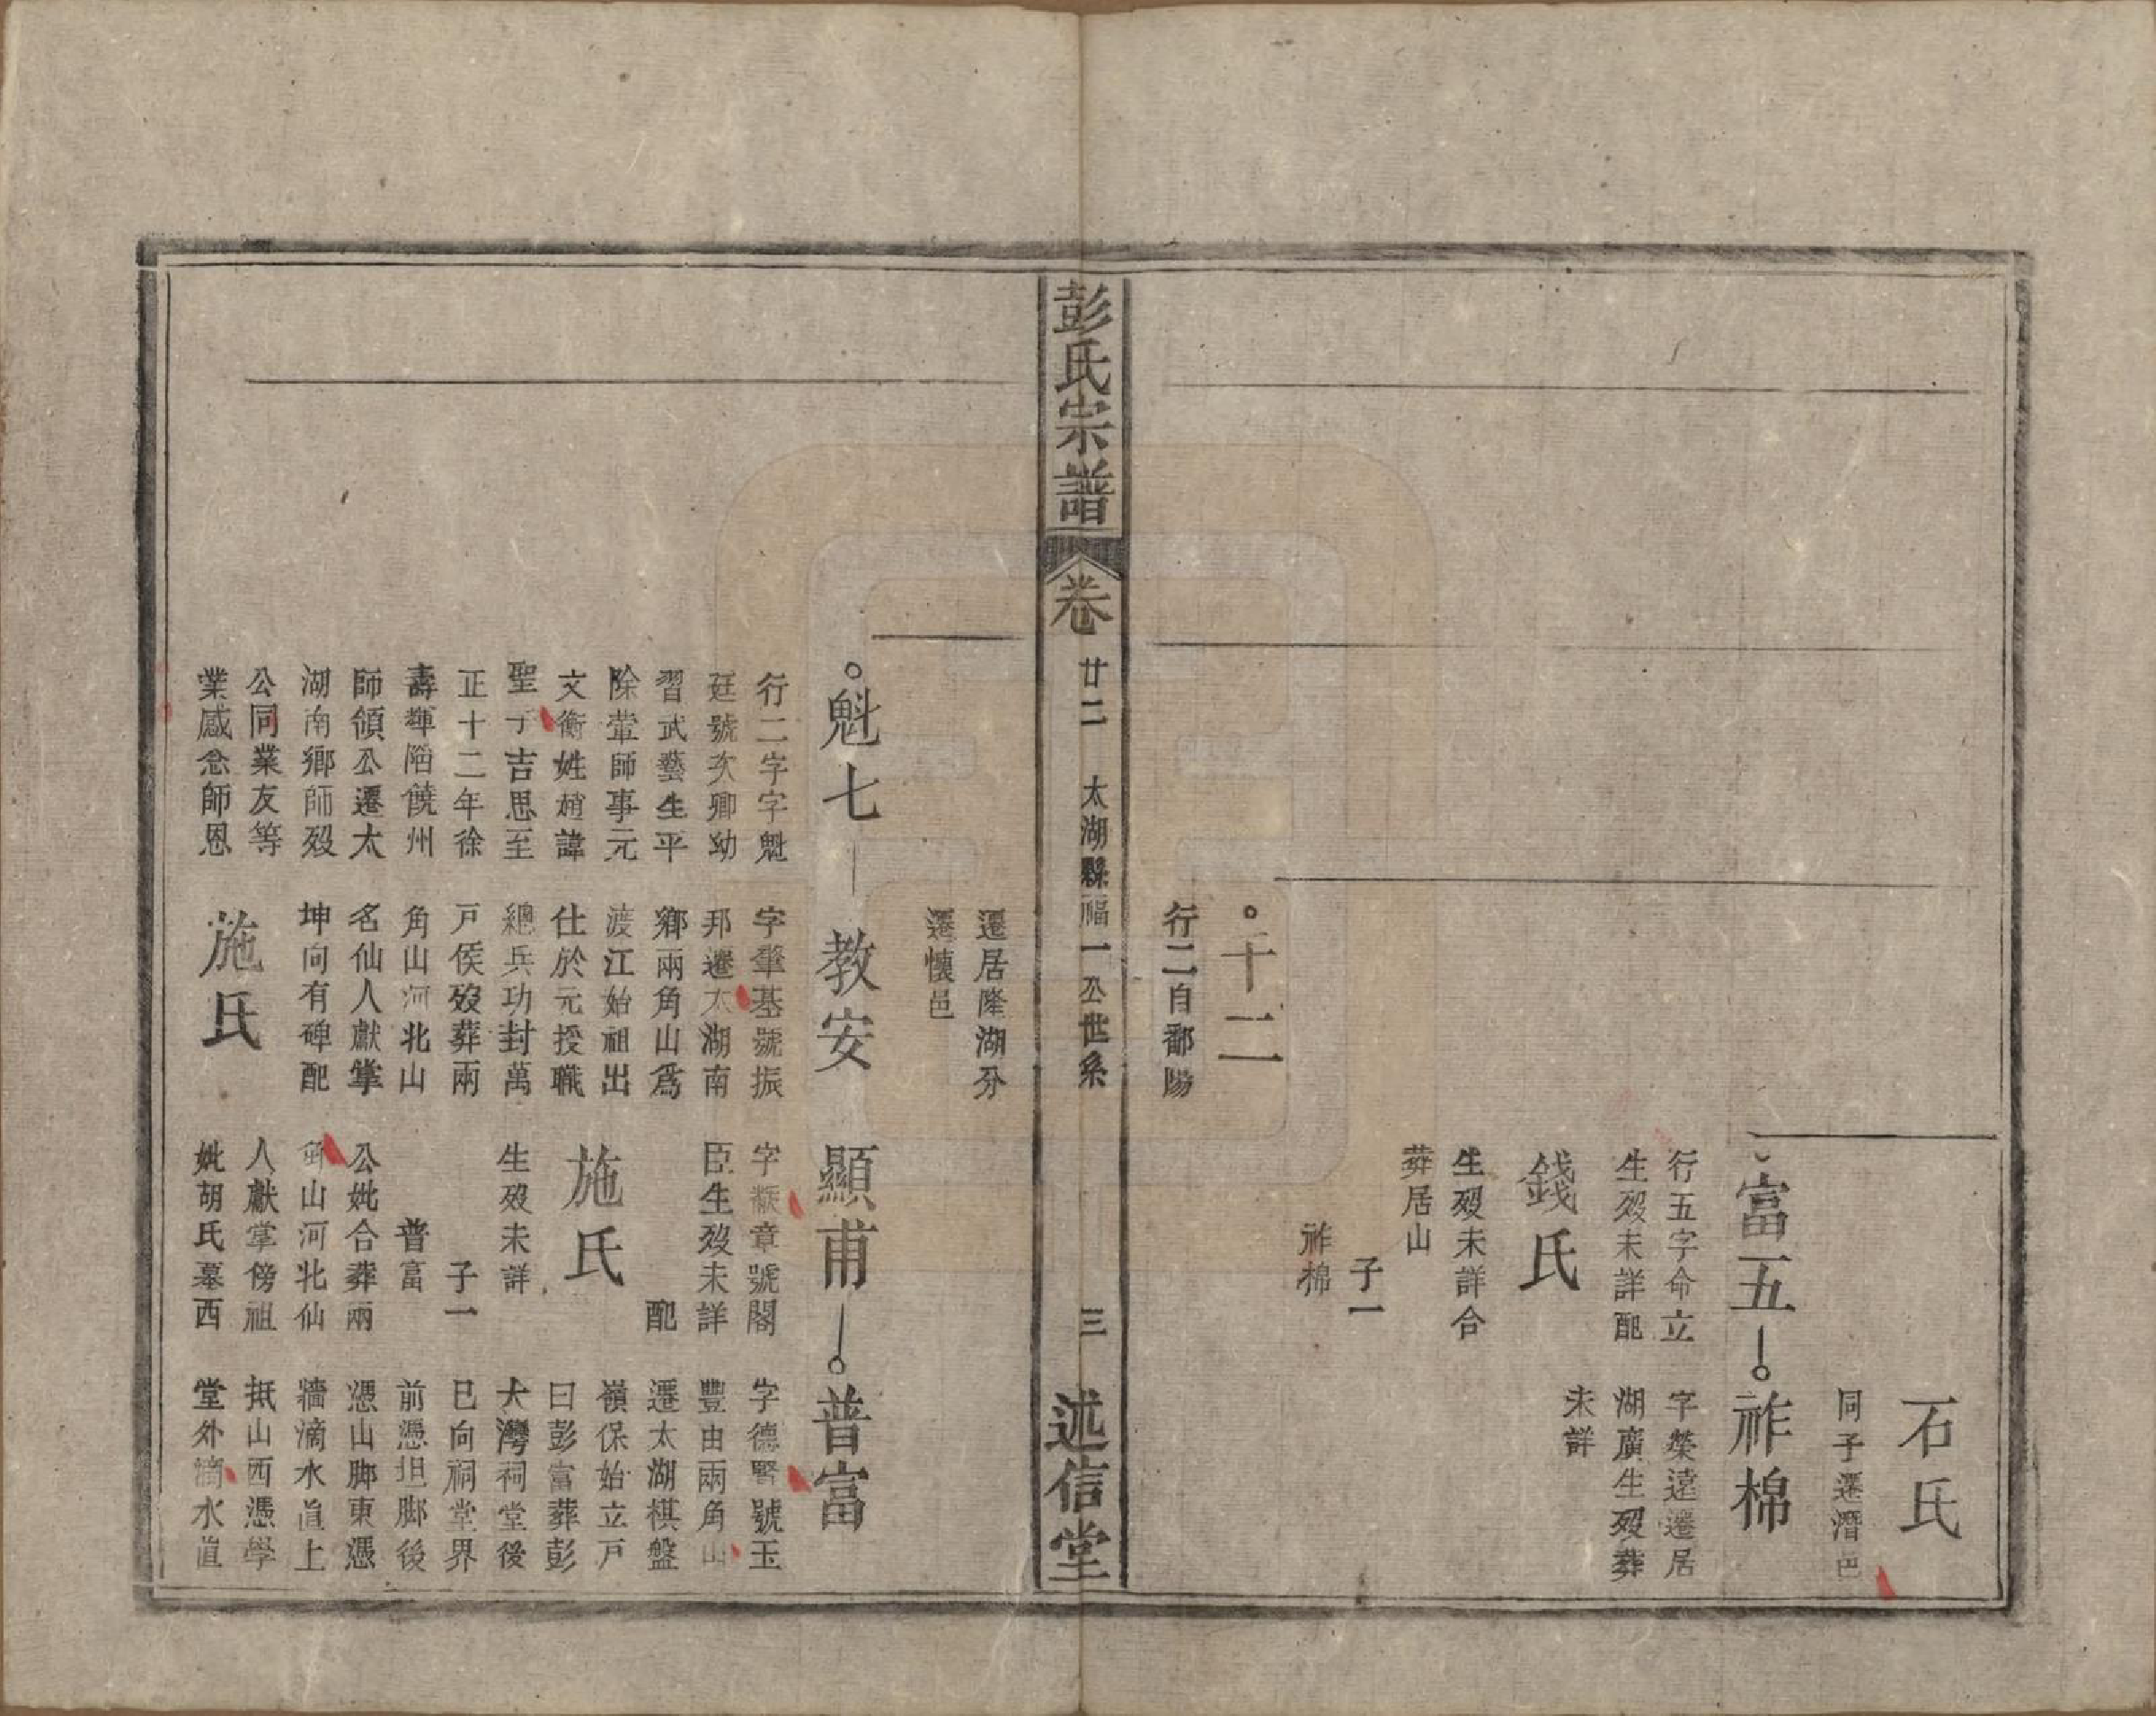 石氏
同子遷潛邑
富五
祚棉
行五字命立
生歿未詳配
字榮遠遷居
湖廣生歿葬
未詳
錢氏
生歿未詳合
葬居山
子一
祚棉
十二
行二自鄱陽
彭氏宗譜
卷
廿二
太湖縣福一公世系
三
述信堂
遷居隆湖分
遷懷邑
魁七
教安
顯甫
普富
行二字字魁
廷號次卿幼
習武藝生平
除葷師事元
文衡姓趙諱
聖于吉思至
正十二年徐
壽輝陷饒州
師領公遷太
湖南鄉師歿
公同業友等
業感念師恩
字肇基號振
邦遷太湖南
鄉兩角山為
渡江始祖出
仕於元授職
總兵功封萬
戶侯歿葬兩
角山河北山
名仙人獻掌
坤向有碑配
施氏
字黻章號閣
臣生歿未詳
配
施氏
生歿未詳
子一
普富
公妣合葬兩
角山河北仙
人獻掌傍祖
妣胡氏墓西
字德賢號玉
豐由兩角山
遷太湖棋盤
嶺保始立戶
曰彭富葬彭
大灣祠堂後
巳向祠堂界
前憑坦腳後
憑山腳東憑
牆滴水直上
抵山西憑學
堂外滴水直